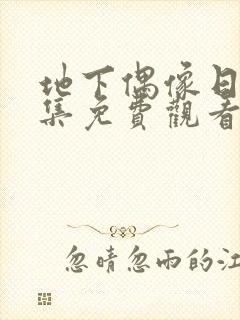 地下偶像日
集免費觀看
忽晴忽雨的江